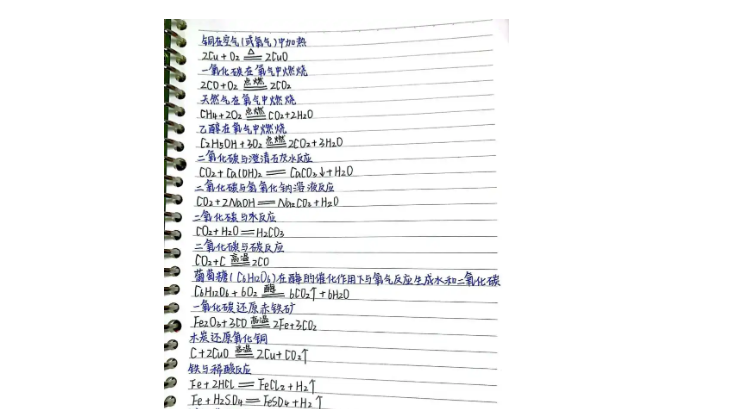 铜在空气(或氧气)中加热
2Cu + O₂ ≜ 2CuO
一氧化碳在氧气中燃烧
2CO+O₂ 点燃 2CO₂
天然气在氧气中燃烧
CH₄+2O₂ 点燃 CO₂+2H₂O
乙醇在氧气中燃烧
C₂H₅OH+3O₂ 点燃 2CO₂+3H₂O
二氧化碳与澄清石灰水反应
CO₂+Ca(OH)₂ == CaCO₃↓+H₂O
二氧化碳与氢氧化钠溶液反应
CO₂+2NaOH == Na₂CO₃+H₂O
二氧化碳与水反应
CO₂+H₂O == H₂CO₃
二氧化碳与碳反应
CO₂+C 高温 2CO
葡萄糖(C₆H₁₂O₆)在酶的催化作用下与氧气反应生成水和二氧化碳
C₆H₁₂O₆+6O₂ 酶 6CO₂↑+6H₂O
一氧化碳还原赤铁矿
Fe₂O₃+3CO 高温 2Fe+3CO₂
木炭还原氧化铜
C+2CuO 高温 2Cu+CO₂↑
铁与稀酸反应
Fe+2HCl == FeCl₂+H₂↑
Fe+H₂SO₄ == FeSO₄+H₂↑